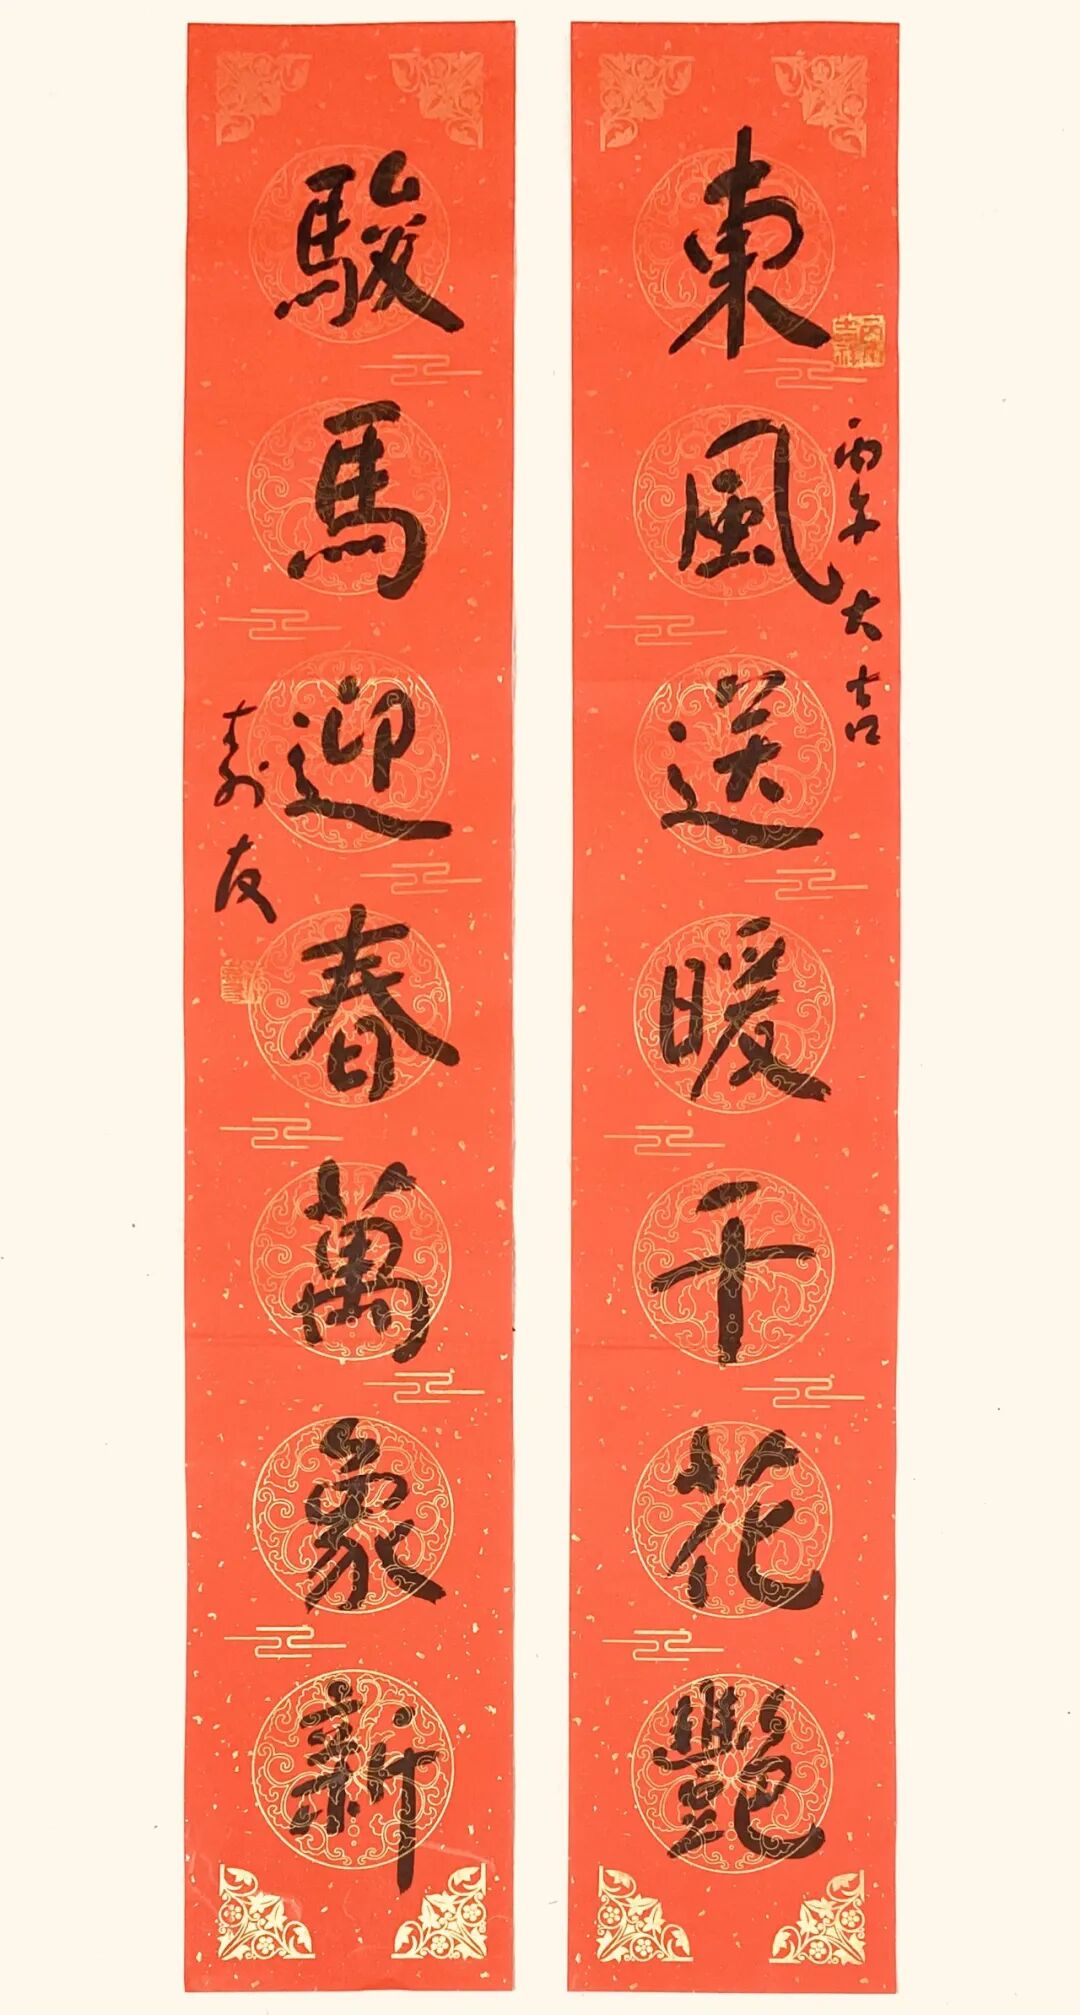 東風送暖千花艷
丙午大吉
駿馬迎春萬象新
壽友